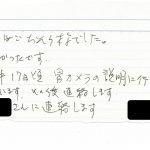 ごちそうさまでした。
かったです。
17日頃 胃カメラの説明に行
います。その後 連絡します
さんに連絡します